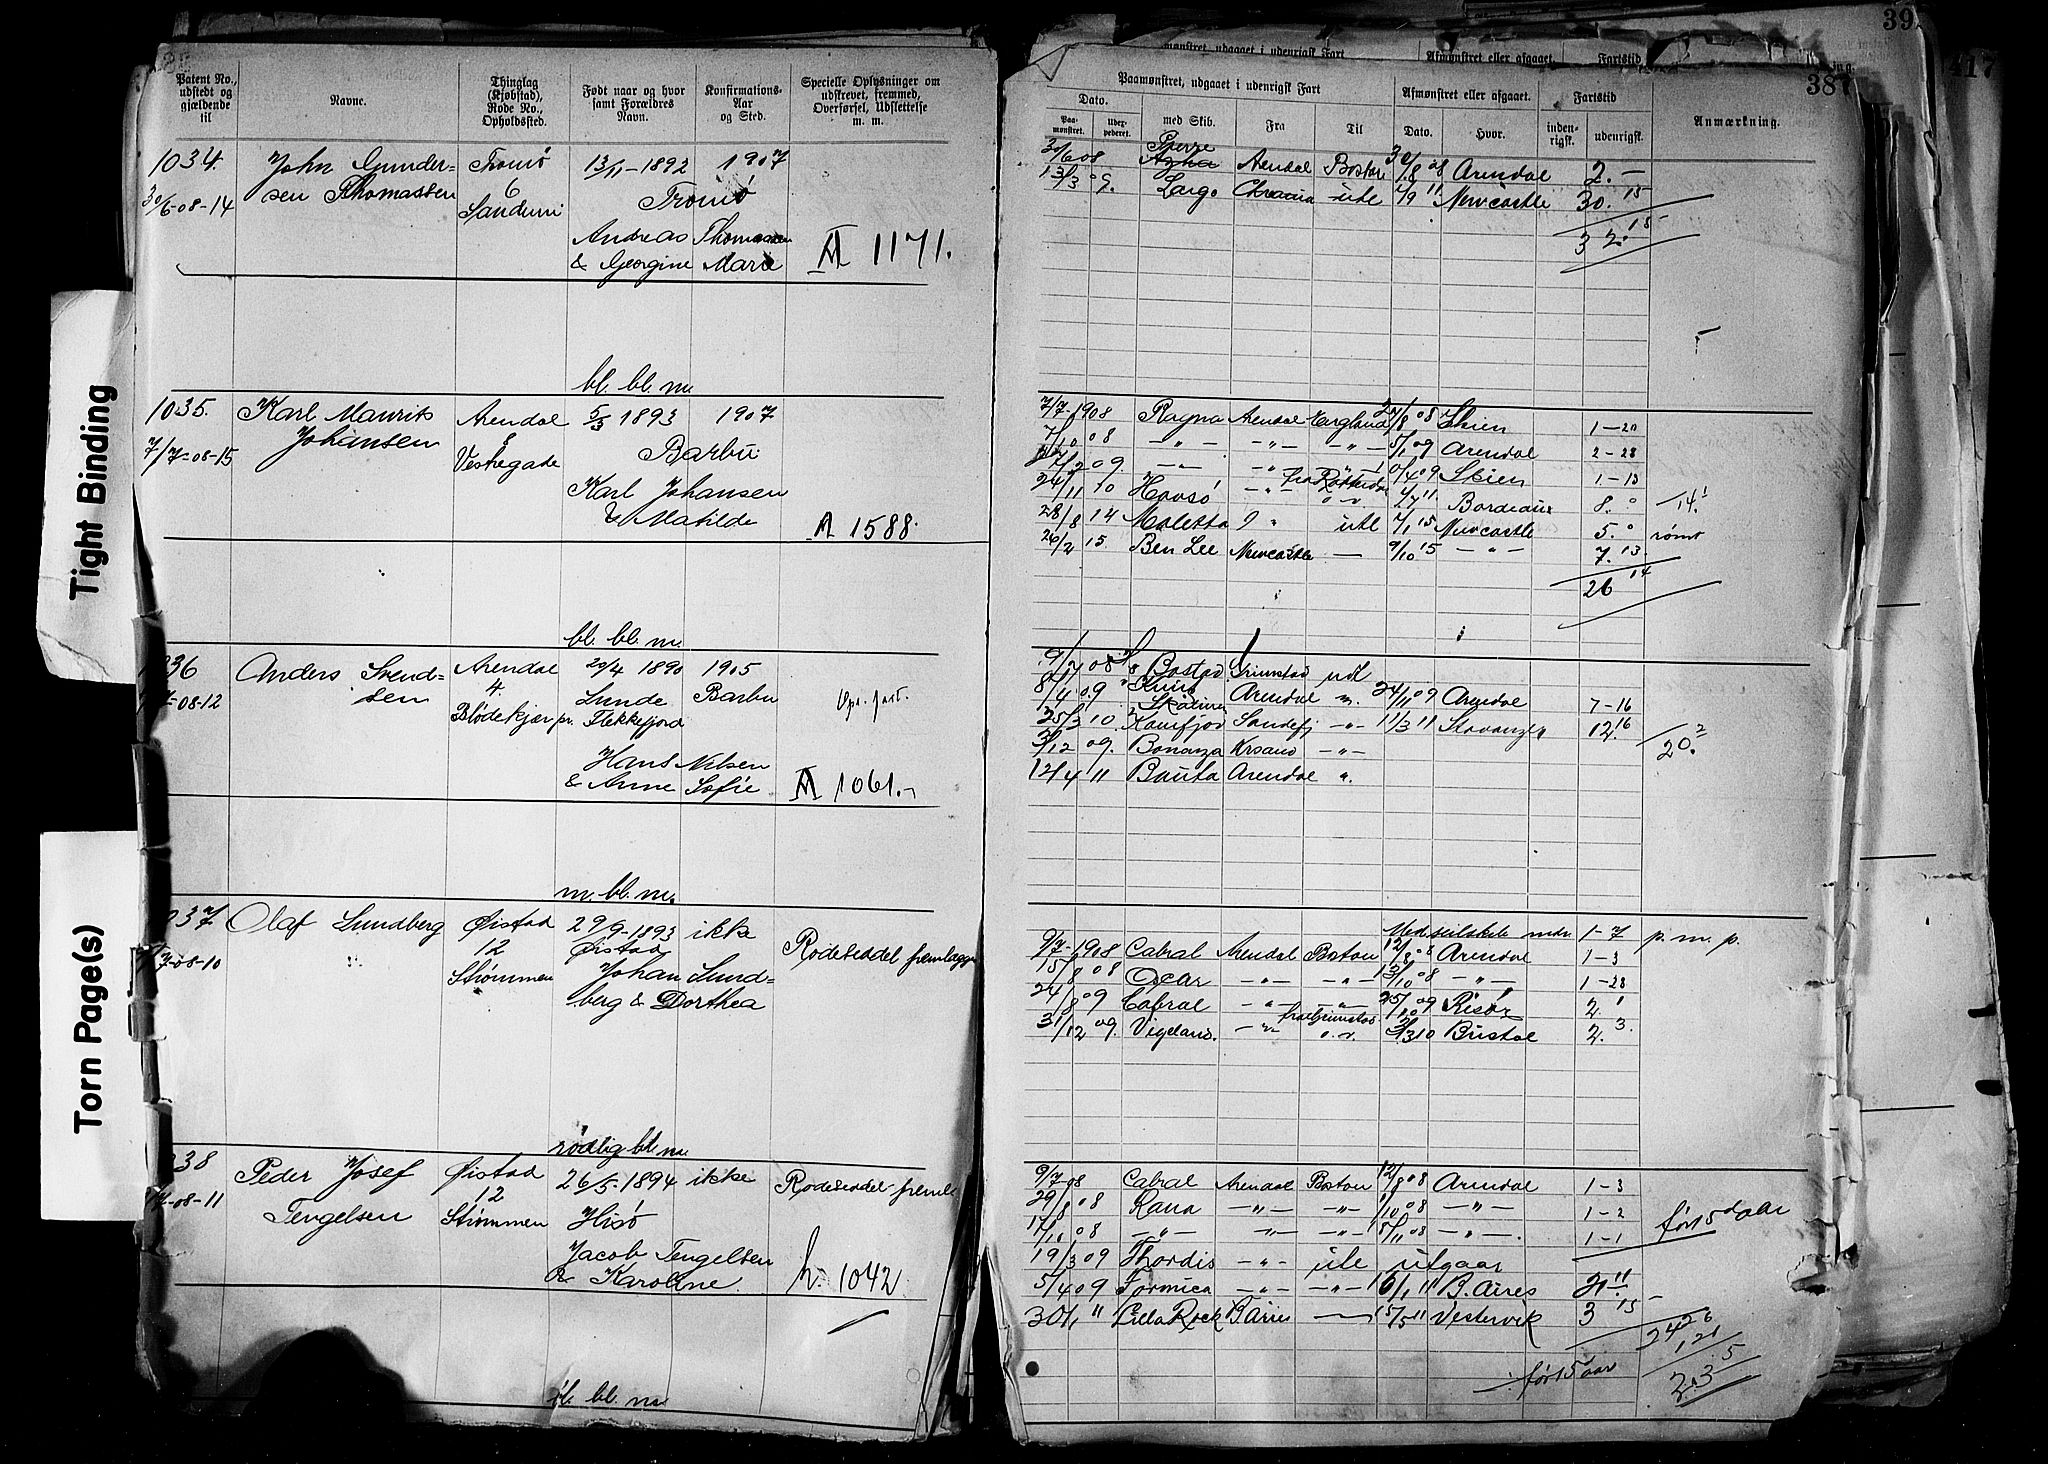 Tight Binding
Torn Page(s)
Patent No., udstedt og gjældende til
Navne.
Thinglag (Kjøbstad), Rode No., Opholdssted.
Født naar og hvor samt Forældres Navn.
Konfirmations-Aar og Sted.
Specielle Oplysninger om udskrevet, fremmed, Overførsel, Udslettelse m. m.
1034. John Gunder- Tromø 13/11-1892 1907
30/6-08-14 sen Thomassen 6 Tromø
Sandum
Andreas Thomassen
& Georgine Marie A 1171.
bl. bl. m.
1035. Karl Mauritz Arendal 5/3 1893 1907
7/7-08-15 Johansen 8 Barbu
Vestregade
Karl Johansen
& Matilde A 1588.
bl. bl. m.
1036 Anders Svend- Arendal 20/4 1890 1905
7-08-12 sen 4. Lunde Barbu
Blødekjær pr. Flekkefjord
Hans Nilsen
& Anne Sofie A 1061.
m. bl. m.
037 Olaf Lundberg Øistad 29/9-1893 ikke
7-08-10 12 Øistad Rodeseddel fremlagt
Strømmen Johan Lund-
berg & Dorthea
rødlig bl. m.
038 Peder Josef Øistad 26/5-1894 ikke Rodeseddel freml.
7-08-11 Tengelsen 12 Hisø
Strømmen
Jacob Tengelsen
& Karoline h. 1042
bl. bl. m.
39
417
387
Paamønstret, udgaaet i udenrigsk Fart
Afmønstret eller afgaaet.
Fartstid
Anmærkning.
Dato.
Paa-mønstret.
med Skib.
Fra
Til
Dato.
Hvor.
inden-rigsk.
udenrigsk.
30/6 08 Arendal Boston 30/8 08 Arendal 2.-
13/3 09. Largo Chrania ute 2/9 11 Newcastle 30.15
32.15
7/7-1908 Ragna Arendal England 27/8 08 Skien 1-20
7/10 08 -"- -"- -"- 5/1 09 Arendal 2-28
/2 09. -"- -"- 10/4 09 Skien 1-13
24/11 10 Havsø -"- fra Rotterdam 2/7 11 Bordeaux 8.0 14.1
28/8 14 Maletta ute 2/1 15 Newcastle 5.0 rømt
26/2 15. Ben Lee Newcastle — 9/10 15 -"- 7.13
26 14
9/7 08 Bastad Grimstad udl
8/4 09 Arendal 24/11 09 Arendal 7-16
25/3 10. Kamfjor Sandefj -"- 11/3 11 Stavanger 12.16
20.2
3/12 09. Bonanza Krsand -"-
12/4 11 Bauta Arendal ".
Med seilskib mdr. 1-7 p. m. p.
9/7-1908 Cabral Arendal Boston 12/8 08 Arendal 1-3
15/8 08 Oscar -"- -"- 13/10 08 -"- 1-28
24/8 09 Cabral -"- -"- 25/10 09 Risør 2.1
31/12 09. Vigeland. -"- fra Grimstad 3/3 10 Bristol 2.3.
9/7-08 Cabral Arendal Boston 12/8 08 Arendal 1-3
29/8 08 Rana -"- -"- 1/10 08 -"- 1-2
17/10 08 -"- -"- -"- 18/11 08 -"-. 1-1
før 15 aar
19/3 09 Thordis -"- ute utgaar
5/4 09 Formica -"- -"- 16/1 11 B. Aires 21.11
30/1 11 Lilla Rock B Aires — 15/5 11 Vestervik 3 15
24 26
før 15 aar
2.3 5